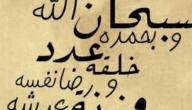 سبحان الله
و بحمده
عدد
خلقه
و رضا نفسه
و زنة عرشه